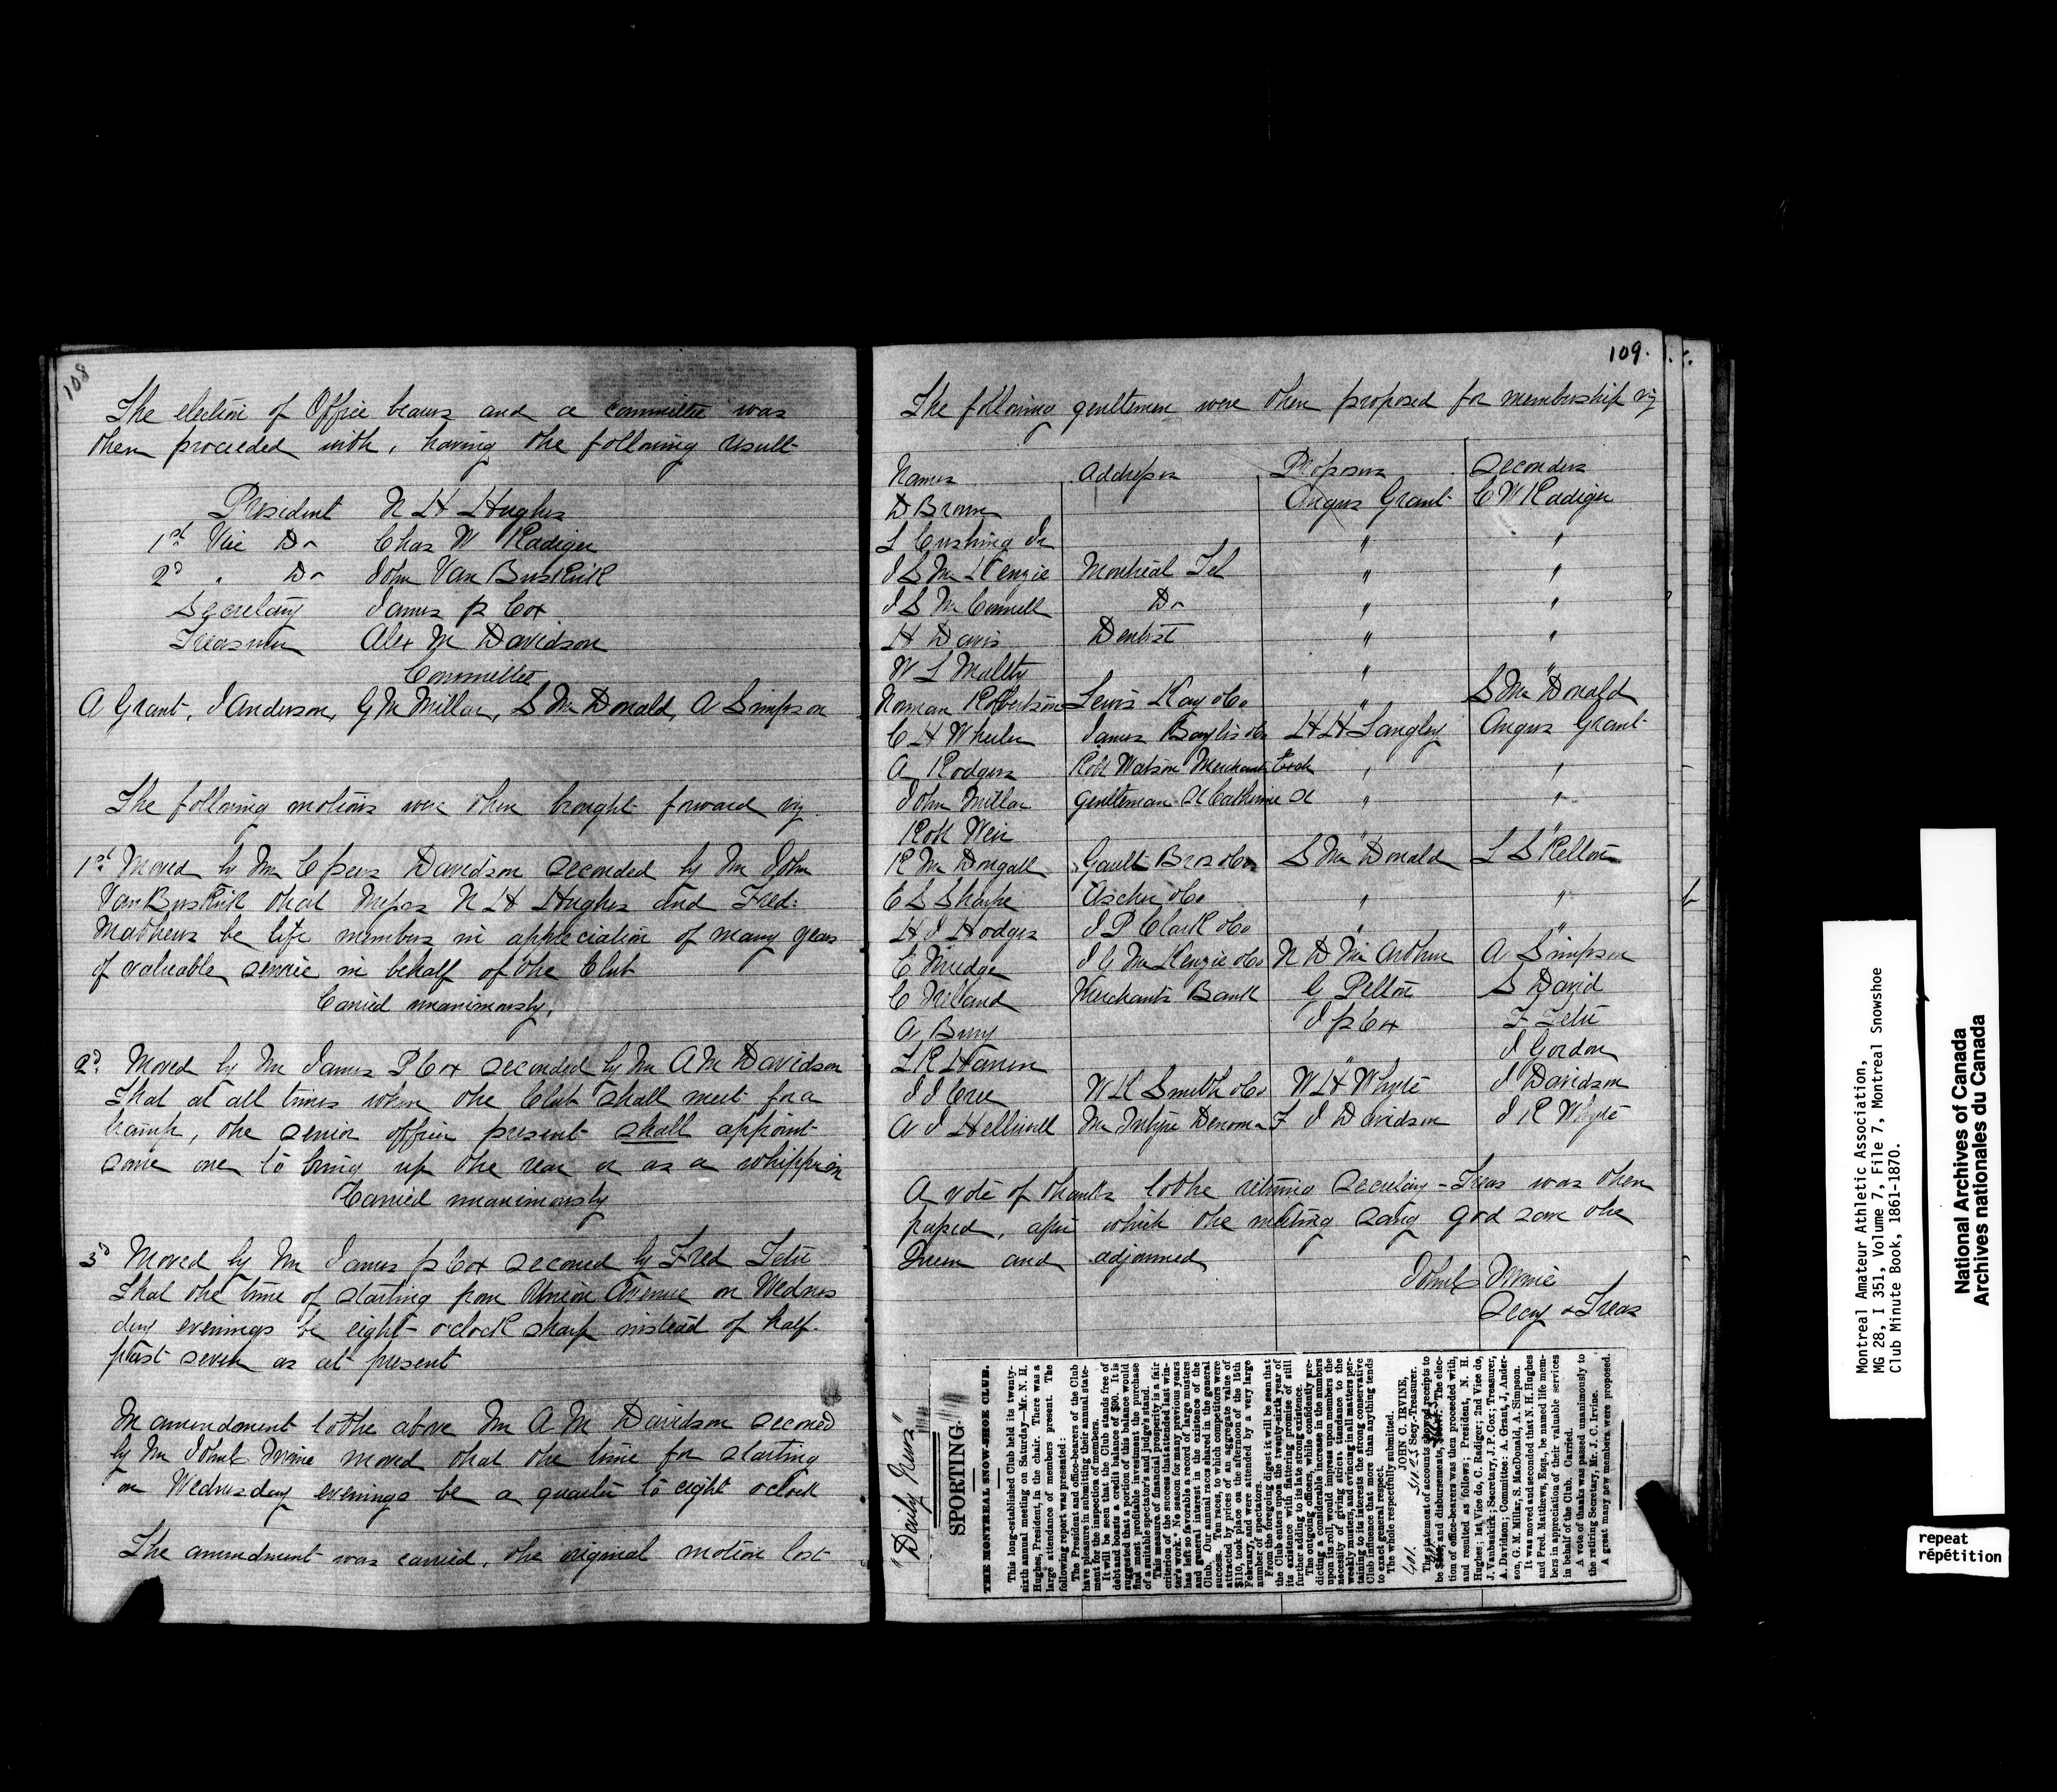 108
The election of Office bearers and a committee was
then proceeded with, having the following result
President N H Hughes
1st Vice Do Chas W Radiger
2d " Do John Van Buskirk
Secretary James P Cox
Treasurer Alex M Davidson
Committee
A Grant, J Anderson, G M Millar, S McDonald, A Simpson
The following motions were then brought forward viz
1st Moved by Mr C Peers Davidson seconded by Mr John
VanBuskirk that Messrs N H Hughes and Fred:
Mathews be life members in appreciation of many years
of valuable service in behalf of the Club
Carried unanimously.
2d Moved by Mr James P Cox seconded by Mr A M Davidson
That at all times when the Club shall meet for a
tramp, the senior officer present shall appoint
some one to bring up the rear or as a whipperin
Carried unanimously
3d Moved by Mr James P Cox seconed by Fred Tetu
That the time of starting from Union Avenue on Wednes
day evenings be eight o'clock sharp instead of half.
past seven as at present
In amendment to the above Mr A M Davidson seconed
by Mr John C Irvine moved that the time for starting
on Wednesday evenings be a quarter to eight oclock
The amendment was carried, the original motion lost
109.
The following gentlemen were then proposed for membership viz
Names Addresses Proposers Seconders
D Brown Angus Grant C W Radiger
L Cushing Jr " "
J S McKenzie Montreal Tel " "
J S McConnell Do " "
H Davis Dentist " "
W L Maltby " "
Norman Robertson Lewis Kay &Co " S McDonald
C H Wheeler James Baylis &Co H H Langley Angus Grant
A Rodgers Robt Watson Merchants Exch " "
John Millar Gentleman St Catherine St " "
Robt Weir " "
R McDougall Gault Bros &Co S McDonald L S Kellow
E S Sharpe Ascher &Co " "
H J Hodges J P Clark &Co " "
E Mudge J G McKenzie &Co N D McArthur A Simpson
C Ireland Merchants Bank G Pelton S David
A Barry J P Cox F Tetu
L R Hamm " J Gordon
J J Cree W R Smith &Co W H Whyte J Davidson
A J Helliwell McIntyre Denoon F J Davidson J R Whyte
A vote of thanks to the retiring Secretary-Treas was then
passed, after which the meeting sang God save the
Queen and adjourned
John C Irvine
Secy & Treas
"Daily News"
SPORTING.
THE MONTREAL SNOW-SHOE CLUB.
This long-established Club held its twenty-
sixth annual meeting on Saturday—Mr. N. H.
Hughes, President, in the chair. There was a
large attendance of members present. The
following report was presented:
The President and office-bearers of the Club
have pleasure in submitting their annual state-
ment for the inspection of members.
It will be seen that the Club stands free of
debt and boasts a credit balance of $90. It is
suggested that a portion of this balance would
find most profitable investment the purchase
of a suitable spectator's and judge's stand.
This measure of financial prosperity is a fair
criterion of the success that attended last win-
ter's work. No season for many previous years
has left so favorable a record of large musters
and general interest in the existence of the
Club. Our annual races shared in the general
success. Ten races, to which competitors were
attracted by prizes of an aggregate value of
$110, took place on the afternoon of the 15th
February, and were attended by a very large
number of spectators.
From the foregoing digest it will be seen that
the Club enters upon the twenty-sixth year of
its existence with flattering promise of still
further adding to its late strong existence.
The outgoing officers, while confidently pre-
dicting a considerable increase in the numbers
upon its roll, would impress upon members the
necessity of giving strict attendance to the
weekly musters, and evincing in all matters per-
taining to its interests the strong conservative
Club influence that more than anything tends
to exact general respect.
The whole respectfully submitted.
JOHN C. IRVINE,
Secy.-Treasurer.
The statement of accounts showed receipts to
be and disbursements, The elec-
tion of office-bearers was then proceeded with,
and resulted as follows; President, N. H.
Hughes; 1st Vice do, C. Radiger; 2nd Vice do,
J. Vanbuskirk; Secretary, J. P. Cox; Treasurer,
A. Davidson; Committee: A. Grant, J, Ander-
son, G. M. Millar, S. MacDonald, A. Simpson.
It was moved and seconded that N. H. Hughes
and Fred. Matthews, Esqs., be named life mem-
bers in appreciation of their valuable services
in behalf of the Club. Carried.
A vote of thanks was passed unanimously to
the retiring Secretary, Mr. J. C. Irvine.
A great many new members were proposed.
Montreal Amateur Athletic Association,
MG 28, I 351, Volume 7, File 7, Montreal Snowshoe
Club Minute Book, 1861-1870.
National Archives of Canada
Archives nationales du Canada
repeat
répétition